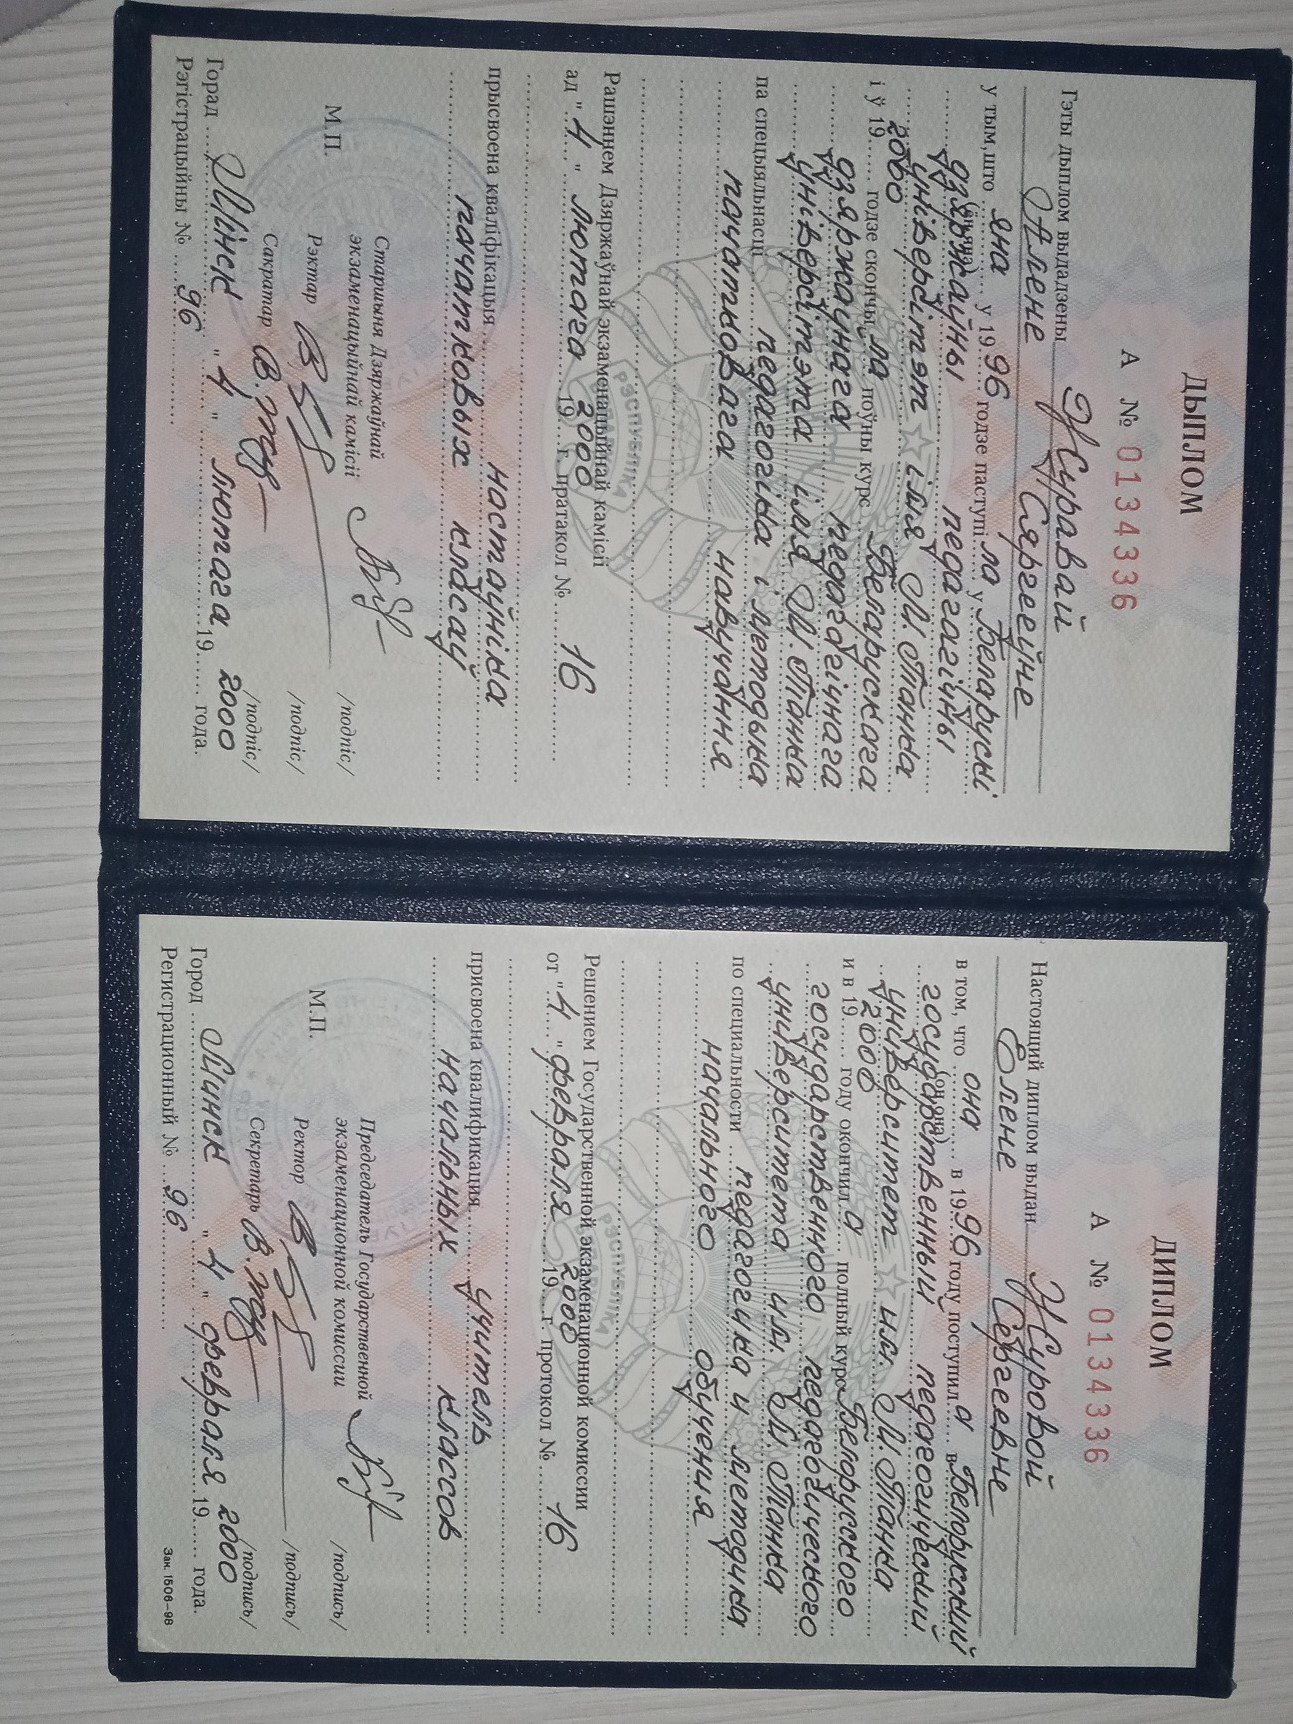 ДЫПЛОМ
А № 0134336
Гэты дыплом выдадзены Журавай
Алене Сяргееўне
у тым, што яна у 1996 годзе паступіла у Беларускі
дзяржаўны педагагічны
універсітэт імя М. Танка
і ў 19 2000 годзе скончыла поўны курс Беларускага
дзяржаўнага педагагічнага
універсітэта імя М. Танка
па спецыяльнасці педагогіка і методыка
пачатковага навучання
Рашэннем Дзяржаўнай экзаменацыйнай камісіі
ад "4" лютага 19 2000 г. пратакол № 16
прысвоена кваліфікацыя настаўніка
пачатковых класаў
Старшыня Дзяржаўнай
экзаменацыйнай камісіі /подпіс/
М.П.
Рэктар /подпіс/
Сакратар /подпіс/
Горад Мінск "4" лютага 19 2000 года.
Рэгістрацыйны № 96
РЭСПУБЛІКА
ДИПЛОМ
А № 0134336
Настоящий диплом выдан Журовой
Елене Сергеевне
в том, что она (он, она) в 1996 году поступила в Белорусский
государственный педагогический
университет им. М. Танка
и в 19 2000 году окончила полный курс Белорусского
государственного педагогического
университета им. М. Танка
по специальности педагогика и методика
начального обучения
Решением Государственной экзаменационной комиссии
от "4" февраля 19 2000 г. протокол № 16
присвоена квалификация учитель
начальных классов
Председатель Государственной
экзаменационной комиссии /подпись/
М.П.
Ректор /подпись/
Секретарь /подпись/
Город Минск "4" февраля 19 2000 года.
Регистрационный № 96
РЭСПУБЛІКА
Зак. 1506–98